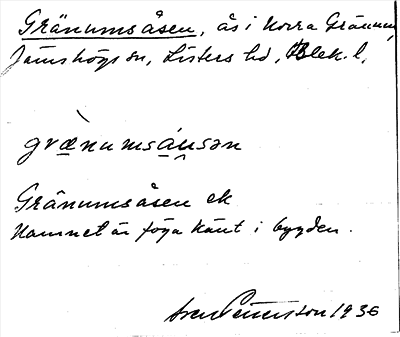 Gränumsåsen, ås i Norra Gränum,
Jämshögs sn, Listers hd, Blek. l,
grænumsåusən
Gränumsåsen ek
Namnet är föga känt i bygden.
Sven Petersson 1936